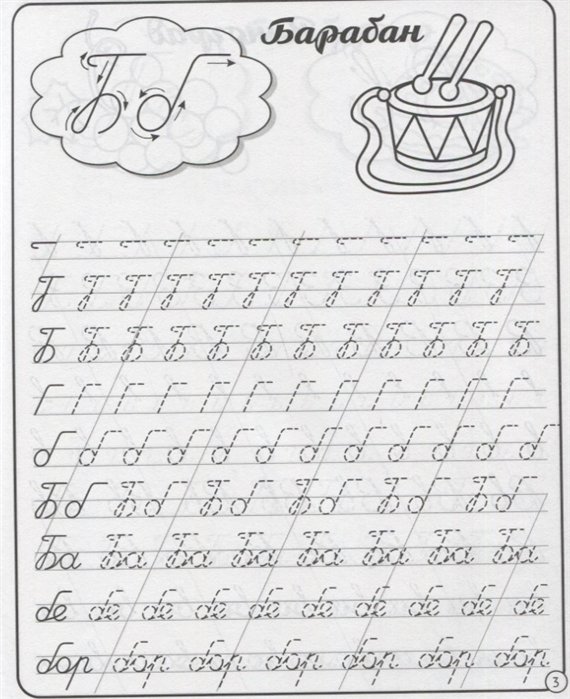 Б б
Барабан
Б Б Б Б Б Б Б Б Б Б Б Б
б б б б б б б б б б б б
Бб Бб Бб Бб Бб Бб
Ба Ба Ба Ба Ба Ба Ба Ба
бе бе бе бе бе бе бе бе бе бе
бор бор бор бор бор бор бор
3